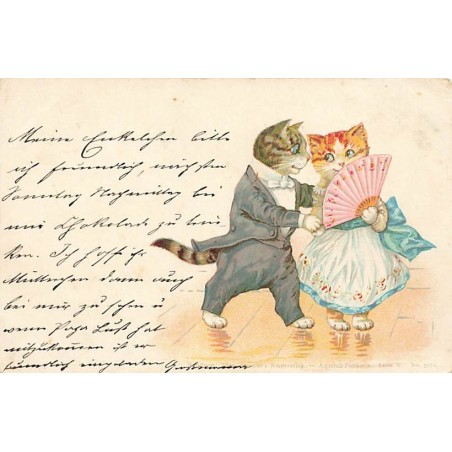 Meine Enkelchen bitte
ich freundlich, nächsten
Sonntag Nachmittag bei
mir Chokolade zu trin-
ken. Ich hoffe Ihr
Mütterchen dann auch
bei mir zu sehen u
wenn Papa Lust hat
mitzukommen ist er
freundlich eingeladen Grossmama